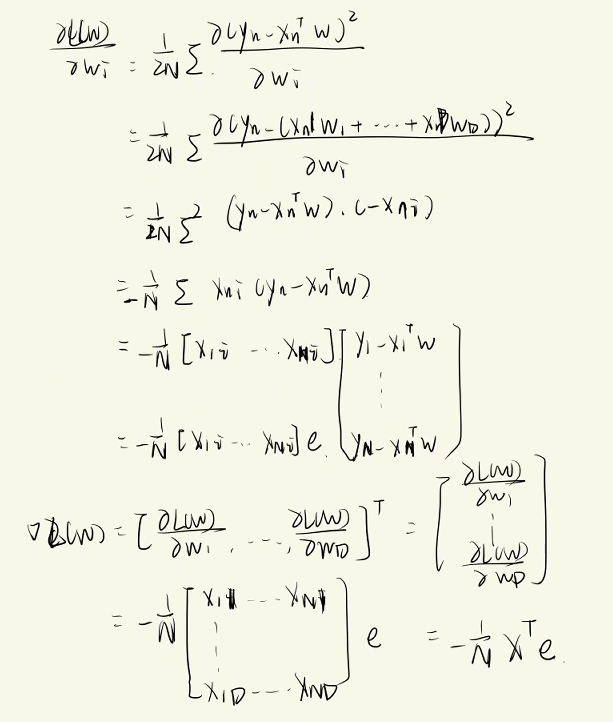 ∂L(W)/∂Wi = 1/2N Σ ∂(yn-xnᵀW)²/∂Wi
= 1/2N Σ ∂(yn-(xn1W1+···+xnDWD))²/∂Wi
= 1/2N Σ 2 (yn-xnᵀW)·(-xni)
= -1/N Σ xni (yn-xnᵀW)
= -1/N [x1i ··· xNi] [y1-x1ᵀW ⋮ yN-xNᵀW]
= -1/N [x1i ··· xNi] e
∇L(W) = [∂L(W)/∂W1, ···, ∂L(W)/∂WD]ᵀ = [∂L(W)/∂W1 ⋮ ∂L(W)/∂WD]
= -1/N [x11 ··· xN1 ⋮ x1D ··· xND] e = -1/N Xᵀe.